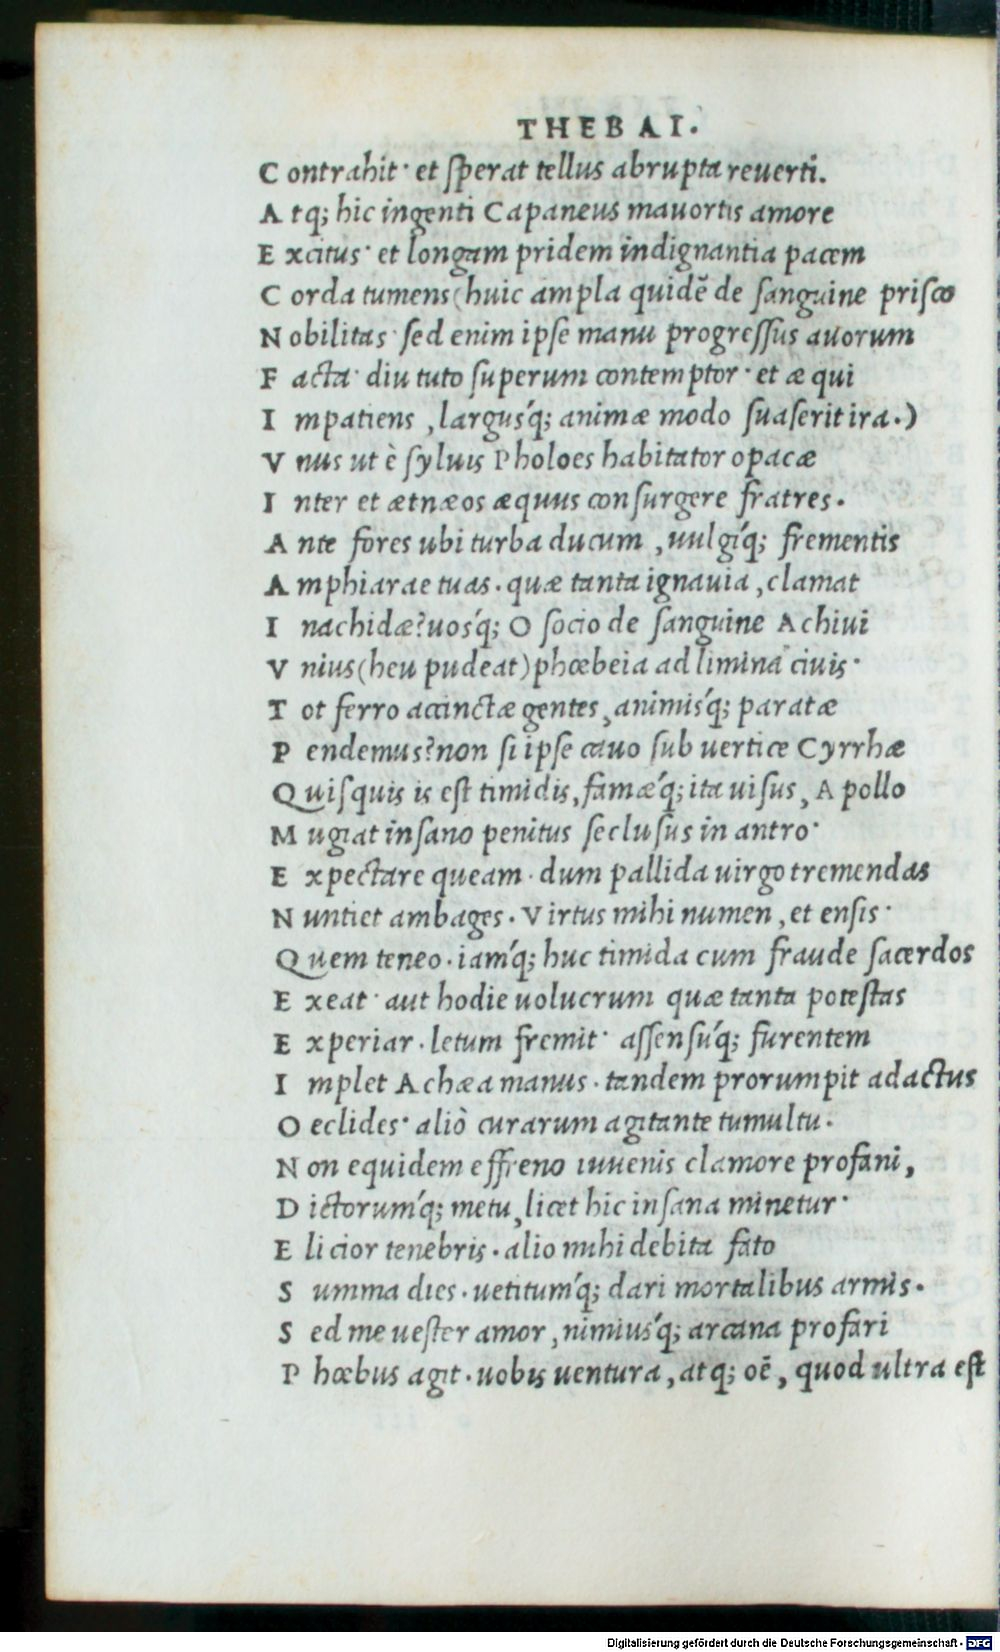 THEBAI.
C ontrahit· et ſperat tellus abrupta reuerti.
A tq; hic ingenti Capaneus mauortis amore
E xcitus· et longam pridem indignantia pacem
C orda tumens (huic ampla quidē de ſanguine priſco
N obilitas· ſed enim ipſe manu progreſſus auorum
F acta· diu tuto ſuperum contemptor· et æqui
I mpatiens, larguſq́; animæ modo ſuaſerit ira.)
V nus ut è ſyluis Pholoes habitator opacæ
I nter et ætnæos æquus conſurgere fratres.
A nte fores ubi turba ducum, uulgiq́; frementis
A mphiarae tuas. quæ tanta ignauia, clamat
I nachidæ? uoſq́; O ſocio de ſanguine Achiui
V nius (heu pudeat) phœbeia ad limina ciuis·
T ot ferro accinctæ gentes, animiſq́; paratæ
P endemus? non ſi ipſe cauo ſub uertice Cyrrhæ
Q uiſquis is eſt timidis, famæq́; ita uiſus, Apollo
M ugiat inſano penitus ſecluſus in antro·
E xpectare queam· dum pallida uirgo tremendas
N untiet ambages. Virtus mihi numen, et enſis·
Q uem teneo. iamq́; huc timida cum fraude ſacerdos
E xeat· aut hodie uolucrum quæ tanta poteſtas
E xperiar. letum fremit· aſſenſuq́; furentem
I mplet Achæa manus. tandem prorumpit adactus
O eclides· aliò curarum agitante tumultu.
N on equidem effreno iuuenis clamore profani,
D ictorumq́; metu, licet hic inſana minetur·
E licior tenebris. alio mihi debita fato
S umma dies. uetitumq́; dari mortalibus armis.
S ed me ueſter amor, nimiuſq́; arcana profari
P hœbus agit. uobis uentura, atq; oē, quod ultra eſt
Digitalisierung gefördert durch die Deutsche Forschungsgemeinschaft - DFG